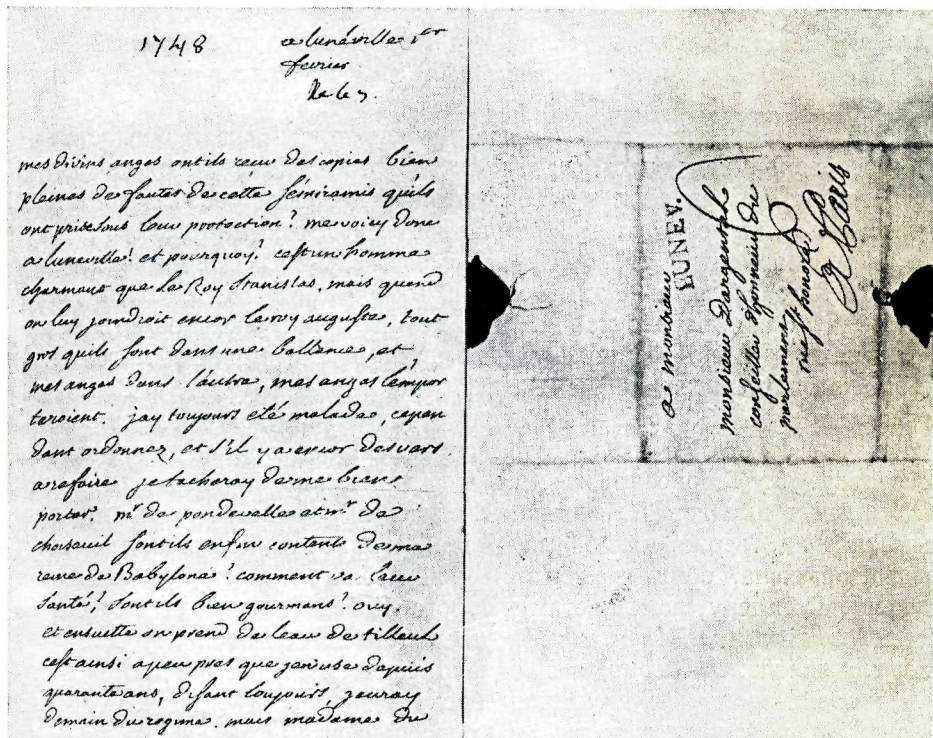 1748
a lunéville 1er
fevrier
mes divins anges ont ils receu des copies bien
pleines de fautes de cette sémiramis quils
ont prise sous leur protection? me voicy donc
a luneville! et pourquoy? cest un homme
charmant que le Roy Stanislas, mais quand
on luy joindroit encor le roy auguste, tout
gros quils sont dans une ballance, et
mes anges dans l'autre, mes anges l'empor
teroient. jay toujours été malade, cepen
dant ordonnez, et s'il y a encor des vers
a refaire je tacheray de me bien
porter. mr de pondevelle et mr de
choiseuil sont ils enfin contents de ma
reine de Babylone? comment va leur
santé? sont ils bien gourmans? ouy.
et ensuitte on prend de leau de tilleul
cest ainsi a peu pres que jen use depuis
quarante ans, disant toujours, jauray
demain du regime. mais madame du
a monsieur
LUNEV.
monsieur Dargental
conseiller d'honneur du
parlement
rue st honoré
a Paris